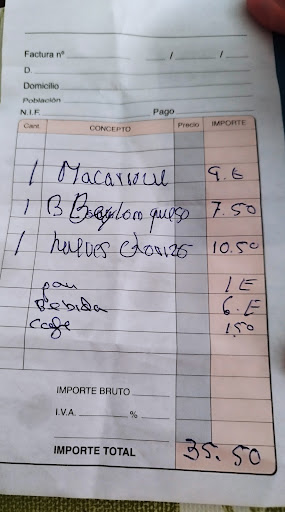 Factura nº / /
D.
Domicilio
Población
N.I.F. Pago
Cant. CONCEPTO Precio IMPORTE
1 Macarrones 9.E
1 B lom queso 7.50
1 huevos chorizo 10.50
pan 1 E
Bebida 6.E
cafe 1,50
IMPORTE BRUTO
I.V.A. %
IMPORTE TOTAL 35.50